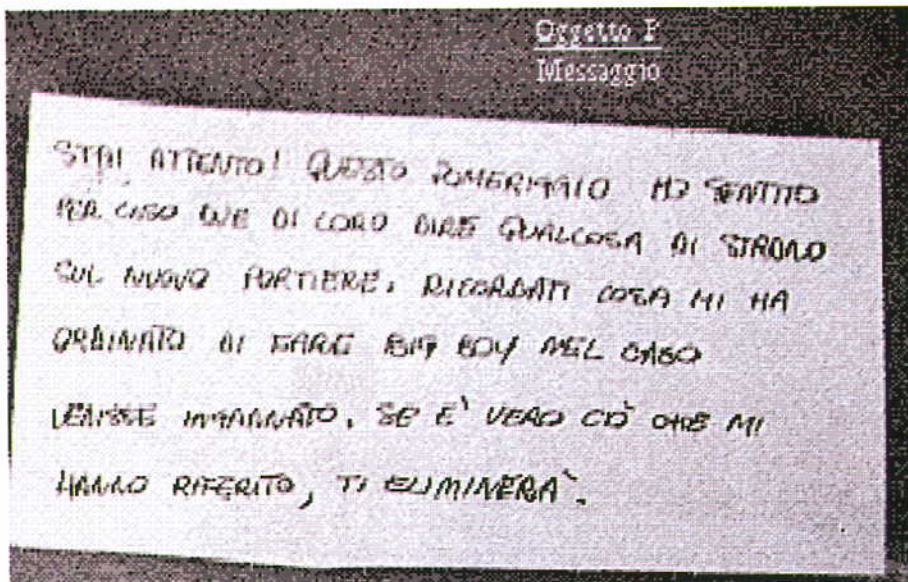 Oggetto F
Messaggio
STAI ATTENTO! QUESTO POMERIGGIO HO SENTITO
PER CASO DUE DI LORO DIRE QUALCOSA DI STRANO
SUL NUOVO PORTIERE. RICORDATI COSA MI HA
ORDINATO DI FARE BIG BOY NEL CASO
VENISSE INGANNATO. SE E' VERO CIÒ CHE MI
HANNO RIFERITO, TI ELIMINERÀ.